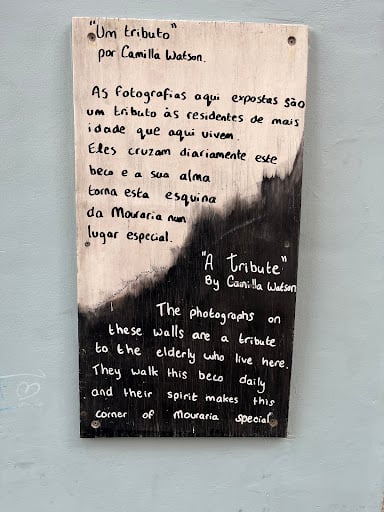 "Um tributo"
por Camilla Watson.
As fotografias aqui expostas são
um tributo às residentes de mais
idade que aqui vivem.
Eles cruzam diariamente este
beco e a sua alma
torna esta esquina
da Mouraria num
lugar especial.
"A Tribute"
By Camilla Watson
The photographs on
these walls are a tribute
to the elderly who live here.
They walk this beco daily
and their spirit makes this
corner of Mouraria special.